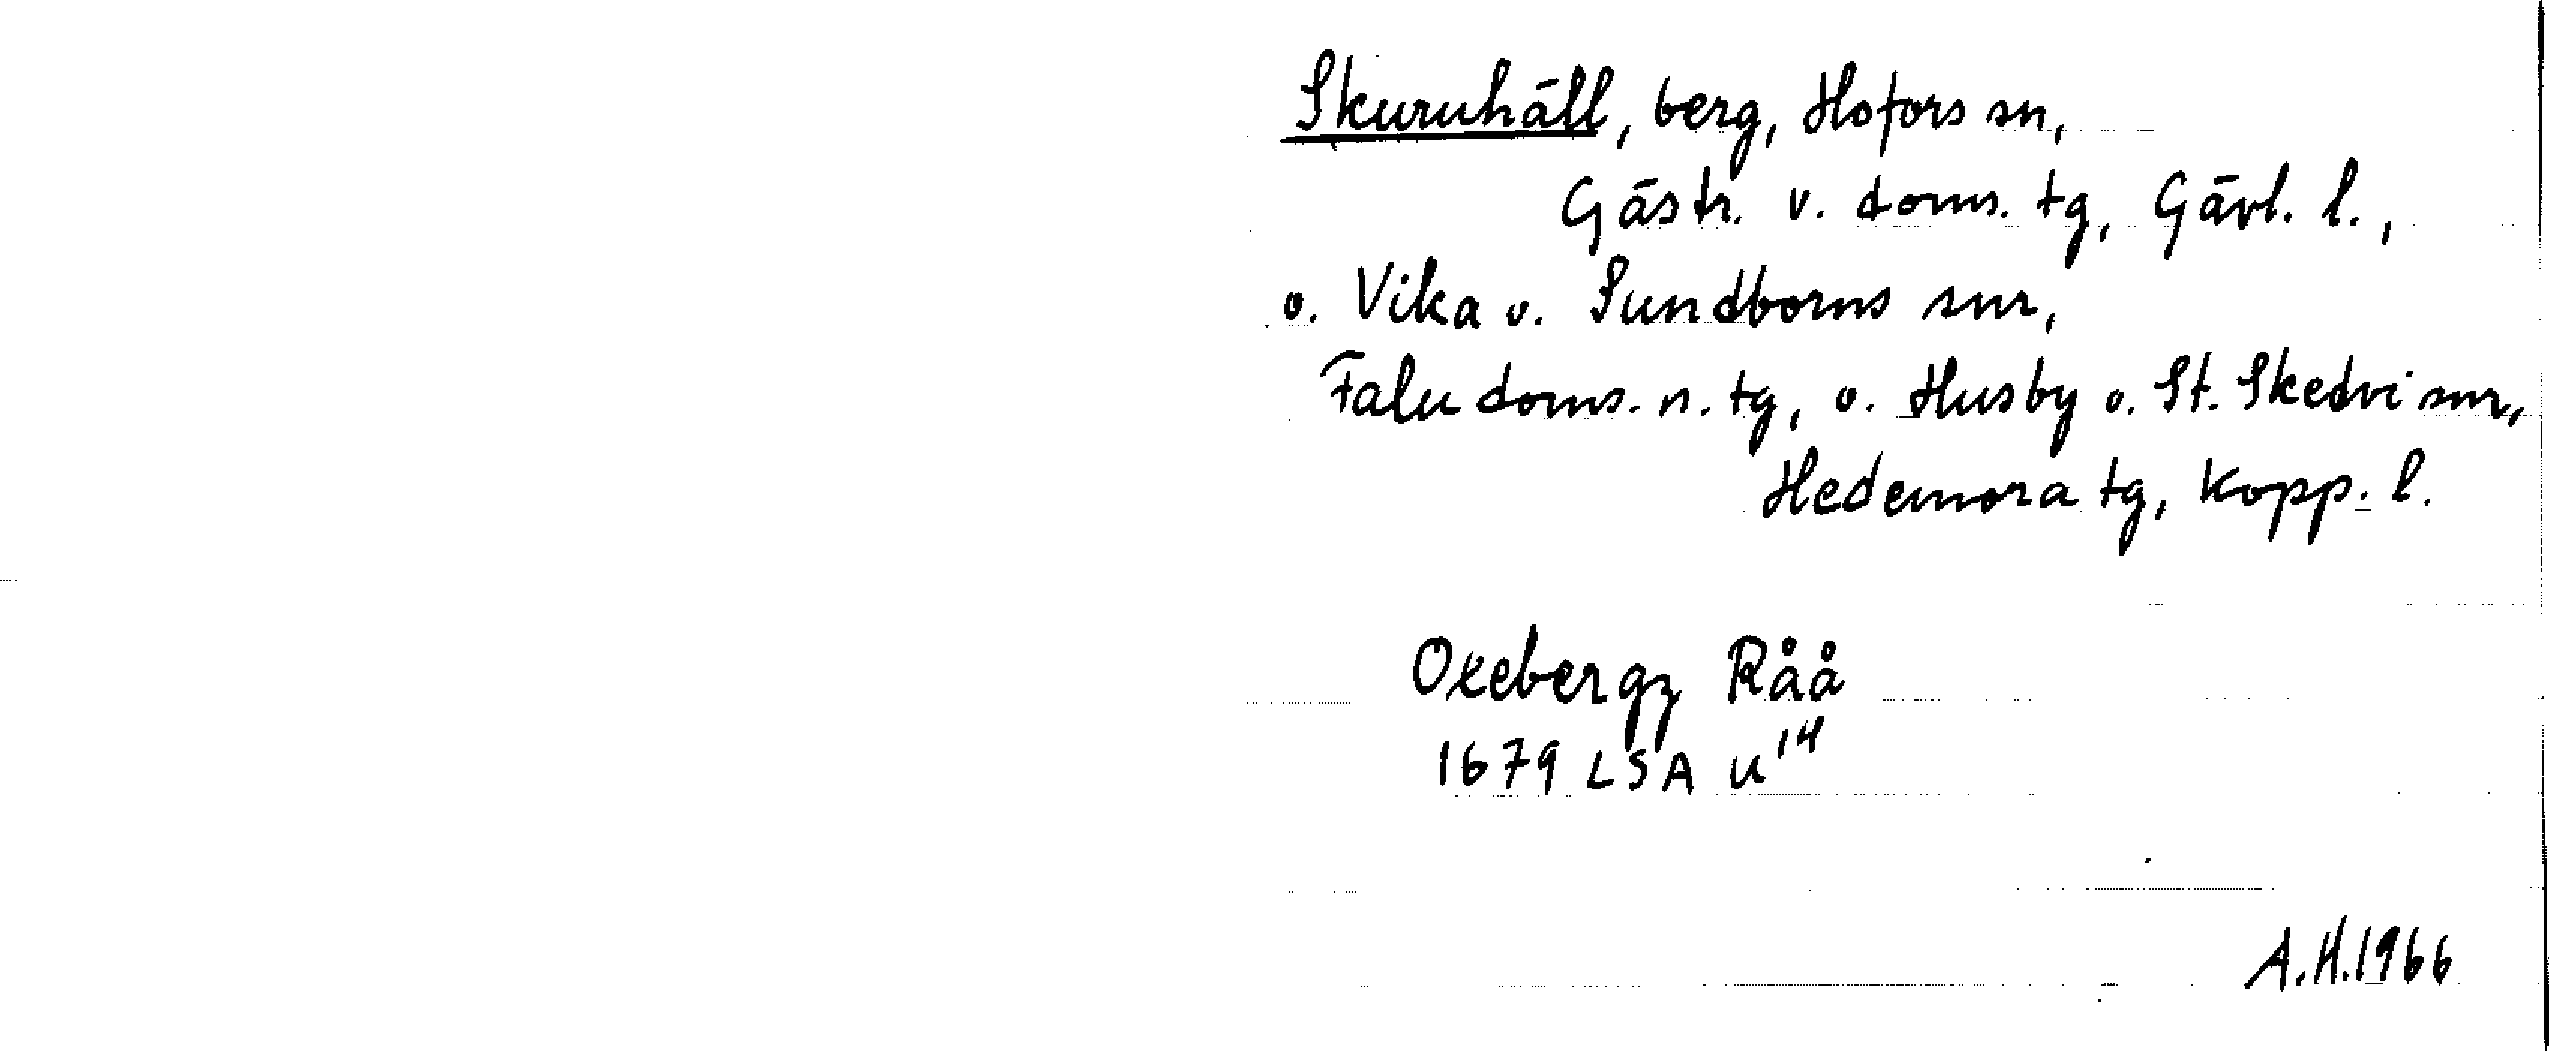 Skuruhäll, berg, Hofors sn,
Gästr. v. doms. tg, Gävl. l.,
o. Vika o. Sundborns snr,
Falu doms. n. tg, o. Husby o. St. Skedvi snr,
Hedemora tg, Kopp. l.
Oxebergz Råå
1679 LSA U14
A.H.1966